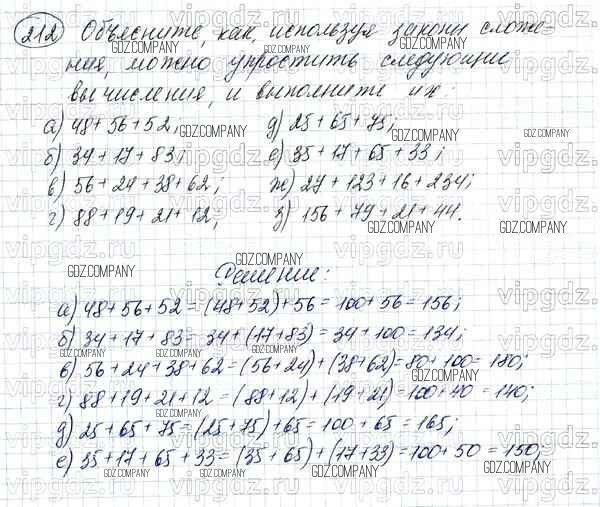 212 Объясните, как, используя законы сложе-
ния, можно упростить следующие
вычисления, и выполните их:
а) 48+56+52; д) 25+65+75;
б) 34+17+83; е) 35+17+65+33;
в) 56+24+38+62; ж) 27+123+16+234;
г) 88+19+21+12; з) 156+79+21+44.
Решение:
а) 48+56+52=(48+52)+56=100+56=156;
б) 34+17+83=34+(17+83)=34+100=134;
в) 56+24+38+62=(56+24)+(38+62)=80+100=180;
г) 88+19+21+12=(88+12)+(19+21)=100+40=140;
д) 25+65+75=(25+75)+65=100+65=165;
е) 35+17+65+33=(35+65)+(17+33)=100+50=150;
GDZ.COMPANY
vipgdz.ru